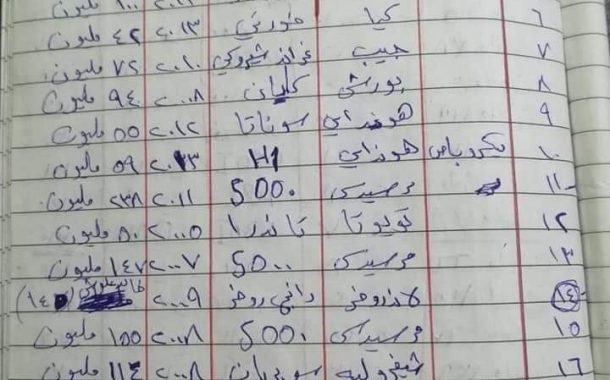 ٦ كيا فورتي ٢٠١٣ ٤٢ مليون
٧ جيب غراند شيروكي ٢٠١٠ ٧٢ مليون
٨ بورش كايان ٢٠٠٨ ٩٤ مليون
٩ هونداي سوناتا ٢٠١٢ ٥٥ مليون
١٠ ميكروباص هونداي H1 ٢٠١٣ ٥٩ مليون
١١ مرسيدس 500 ٢٠١١ ٢٣٨ مليون
١٢ تويوتا تاندرا ٢٠٠٥ ٨٠ مليون
١٣ مرسيدس 500 ٢٠٠٧ ١٤٧ مليون
١٤ لاندروفر رانج روفر ٢٠٠٩
١٥ مرسيدس 500 ٢٠٠٨ ١٥٥ مليون
١٦ شيفروليه سوبربان ٢٠٠٨ ١١٤ مليون